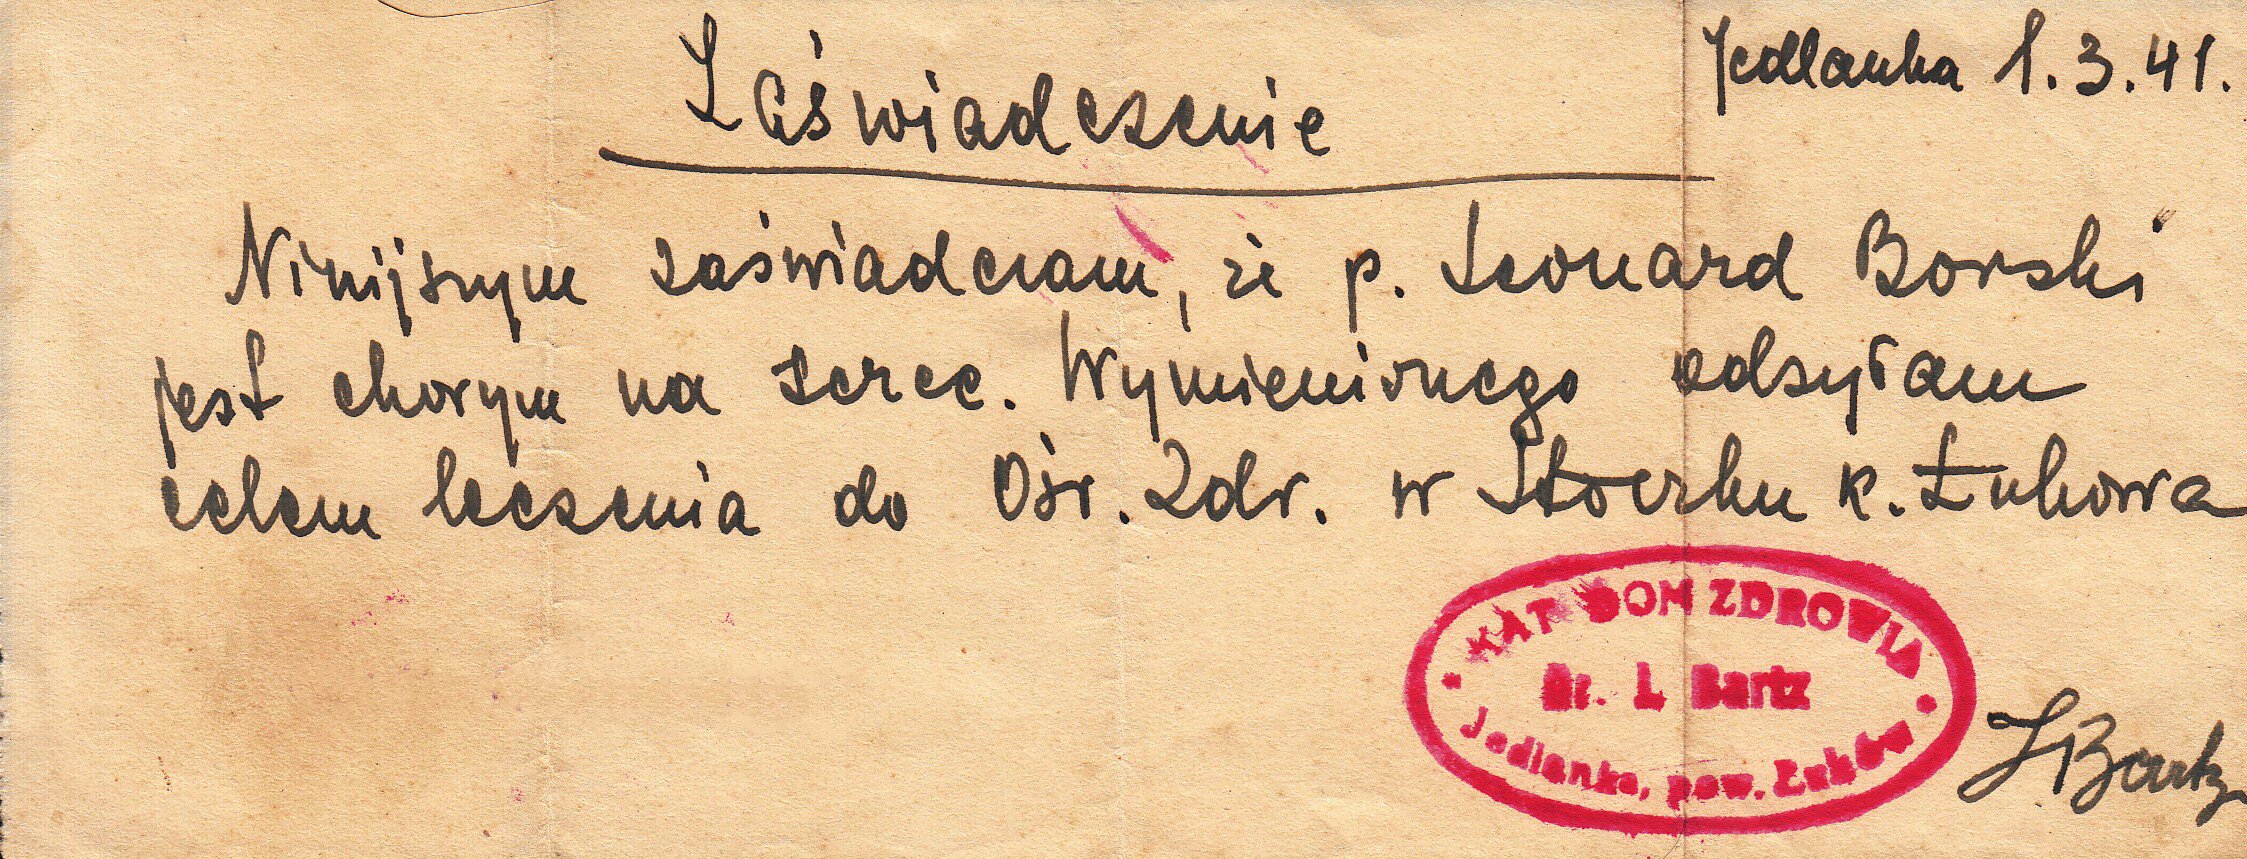 Jedlanka 1.3.41.
Zaświadczenie
Ninijszym zaświadczam, że p. Leonard Borski
jest chorym na serce. Wymienionego odsyłam
celem leczenia do Ośr. Zdr. w Stoczku k. Łukowa
KAT DOM ZDROWIA
Dr. L Bartz
Jedlanka, pow. Łuków
LBartz